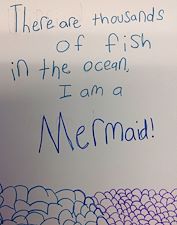 There are thousands
of fish
in the ocean,
I am a
Mermaid!